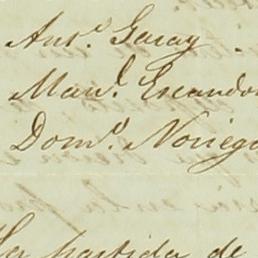 Anto. Garay
Manl. Escandon
Domo. Noriega
La partida de